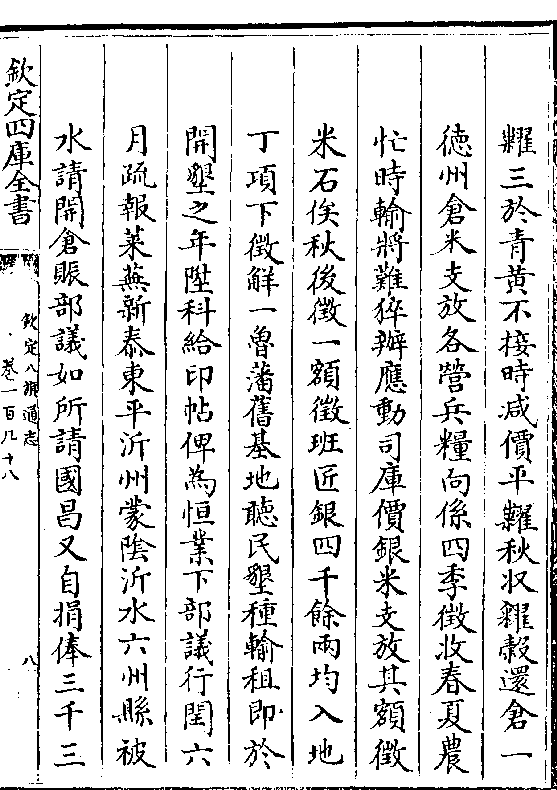 糶三於青黄不接時减價平糶秋收糴穀還倉一
徳州倉米支放各營兵糧向係四季徴收春夏農
忙時輸將難猝辦應動司庫價銀米支放其額徴
米石俟秋後徴一額徴班匠銀四千餘兩均入地
丁項下徴解一魯藩舊基地聽民墾種輸租即於
開墾之年陞科給印帖俾為恒業下部議行閏六
月疏報萊蕪新泰東平沂州蒙陰沂水六州縣被
水請開倉賑部議如所請國昌又自捐俸三千三
欽定四庫全書
欽定八旗通志
卷一百九十八
八